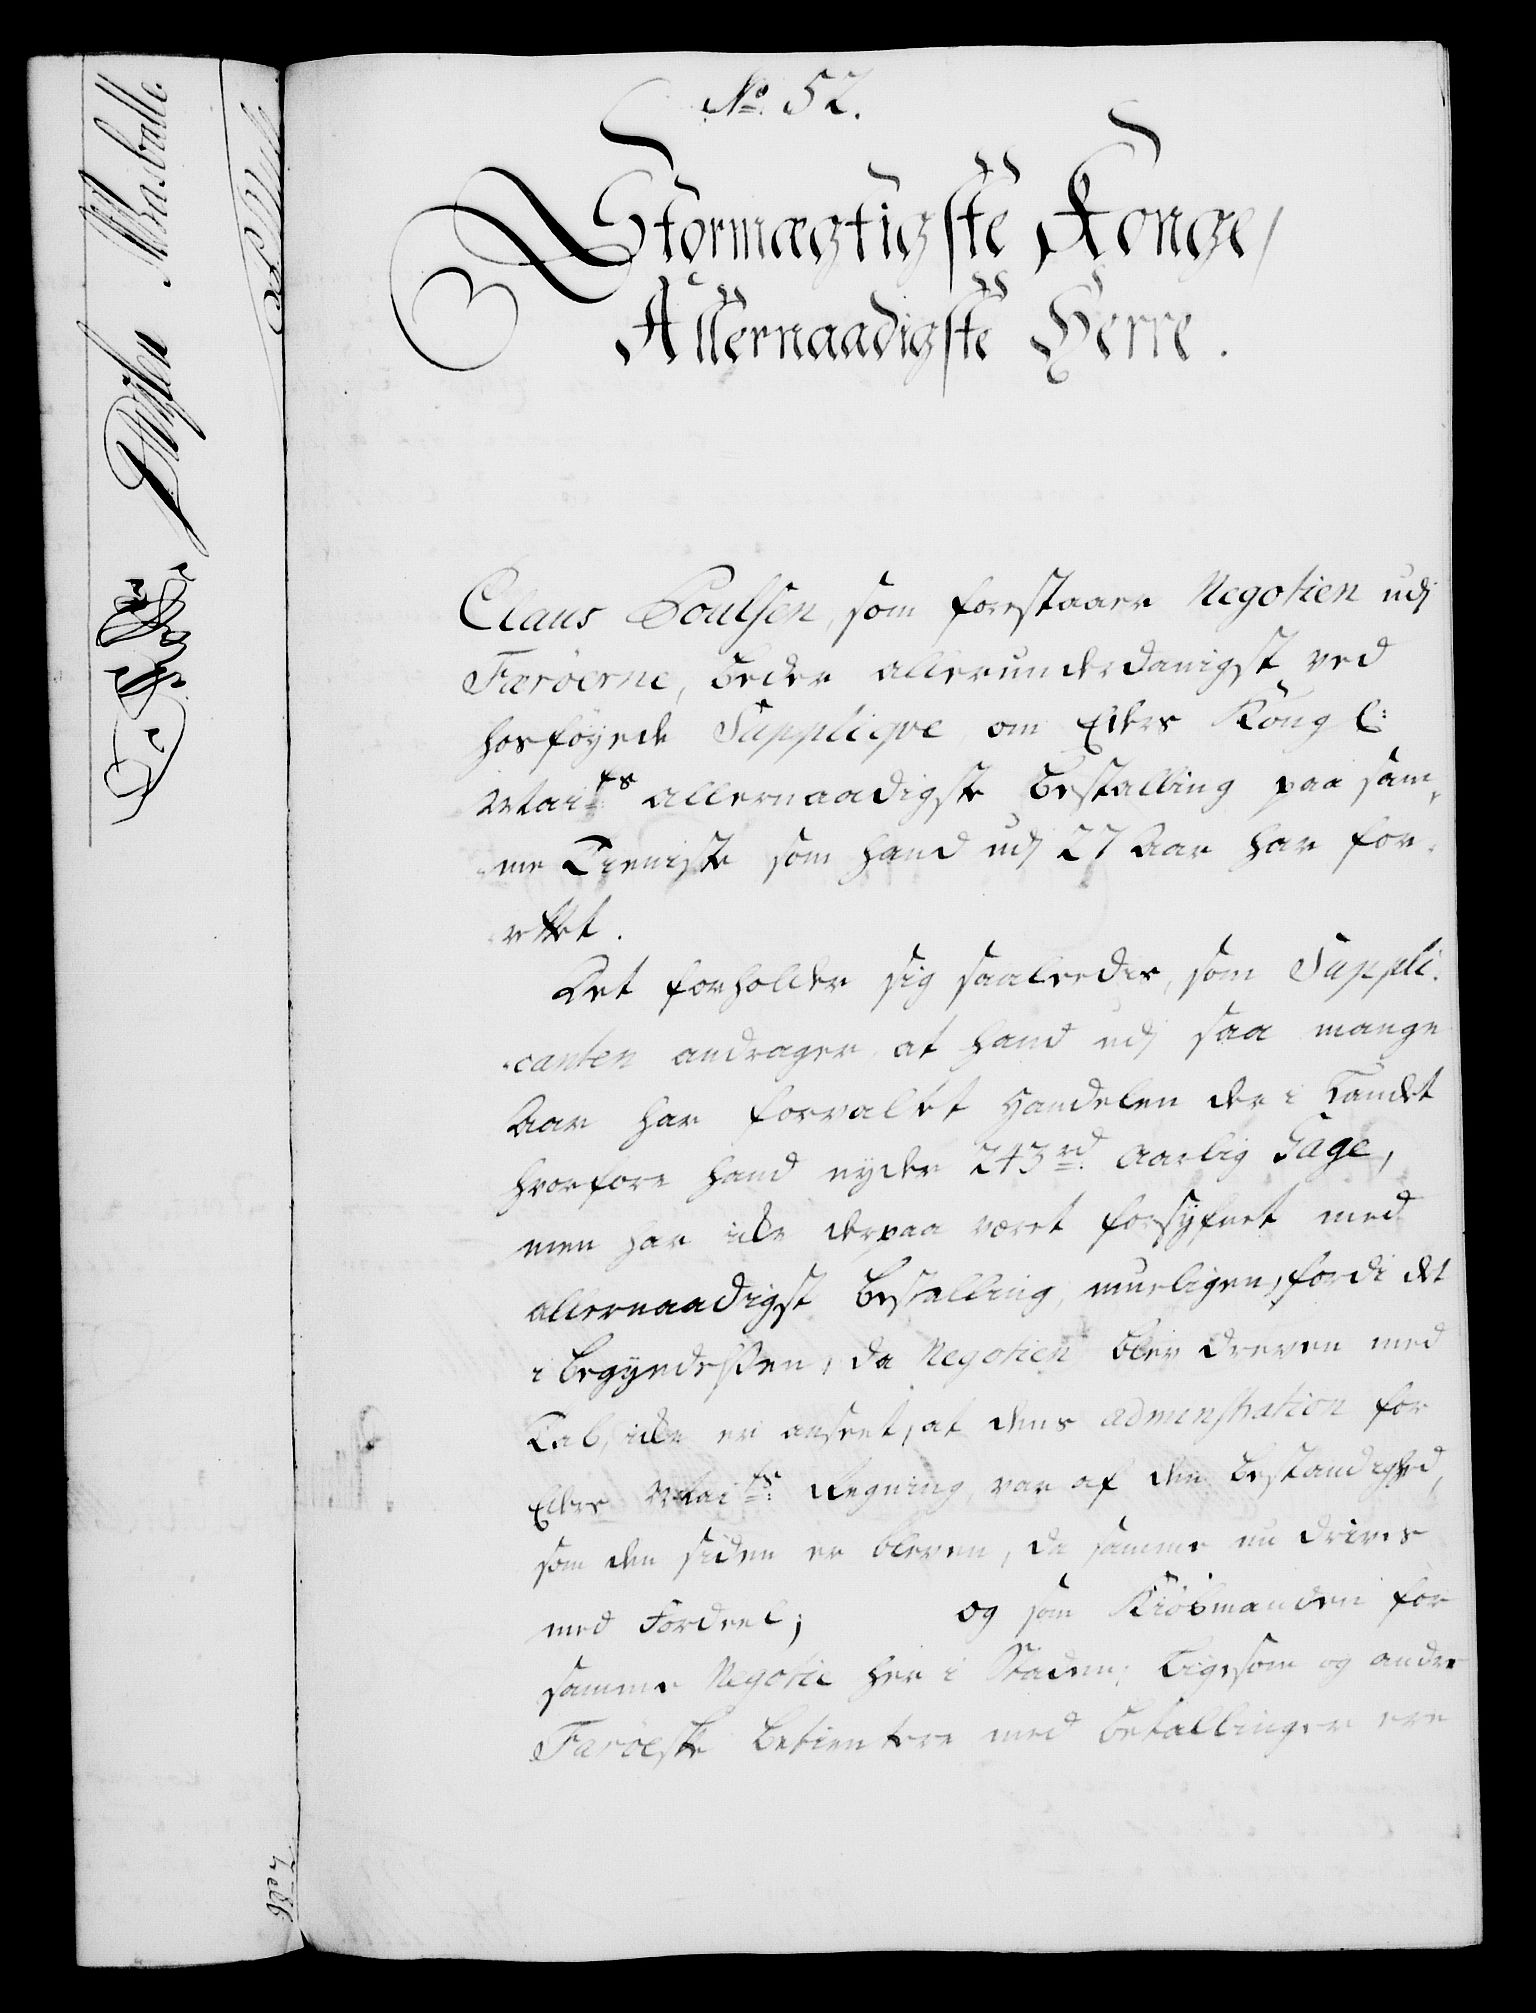 No. 52.
Stormægtigste Konge,
Allernaadigste Herre.
Claus Poulsen, som forstaaer Negotien udj
Færöerne, beder allerunderdanigst ved
hosföyede Supplique om Eders Kongl:
Maits allernaadigste Bestalling paa sam-
me Tieniste som hand udj 27 Aar har for-
rettet.
Det forholder sig saaledes, som Suppli-
canten andrager, at hand udj saa mange
Aar har forvaltet Handelen der i Landet
hvorfore hand nyder 243 rd. Aarlig Gage,
men har icke derpaa været forsyfnet med
allernaadigst Bestalling, mueligen, fordi det
i Begyndelsen, da Negotien blev dreven med
Tab, icke er anseet, at dens administration for
Eders Maits: Regning var af den Bestandighed,
som den siden er bleven, da samme nu drives
med Fordeel; og som Kiöbmanden for
samme Negotie her i Staden, ligesom og andre
Færöeske Betientere med Bestallinger ere